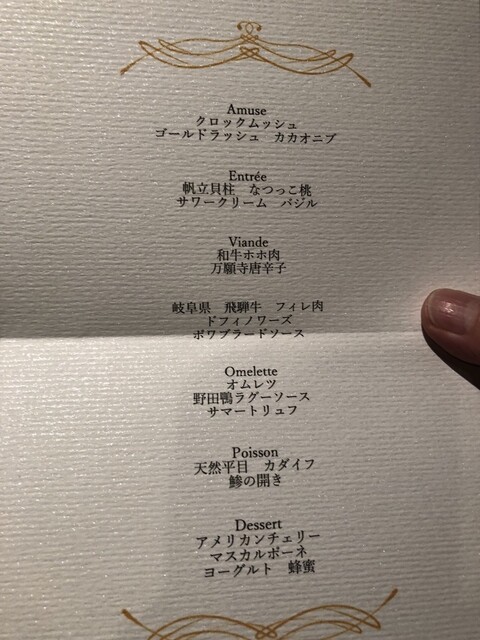 Amuse
クロックムッシュ
ゴールドラッシュ　カカオニブ
Entrée
帆立貝柱　なつっこ桃
サワークリーム　バジル
Viande
和牛ホホ肉
万願寺唐辛子
岐阜県　飛騨牛　フィレ肉
ドフィノワーズ
ポワブラードソース
Omelette
オムレツ
野田鴨ラグーソース
サマートリュフ
Poisson
天然平目　カダイフ
鯵の開き
Dessert
アメリカンチェリー
マスカルポーネ
ヨーグルト　蜂蜜